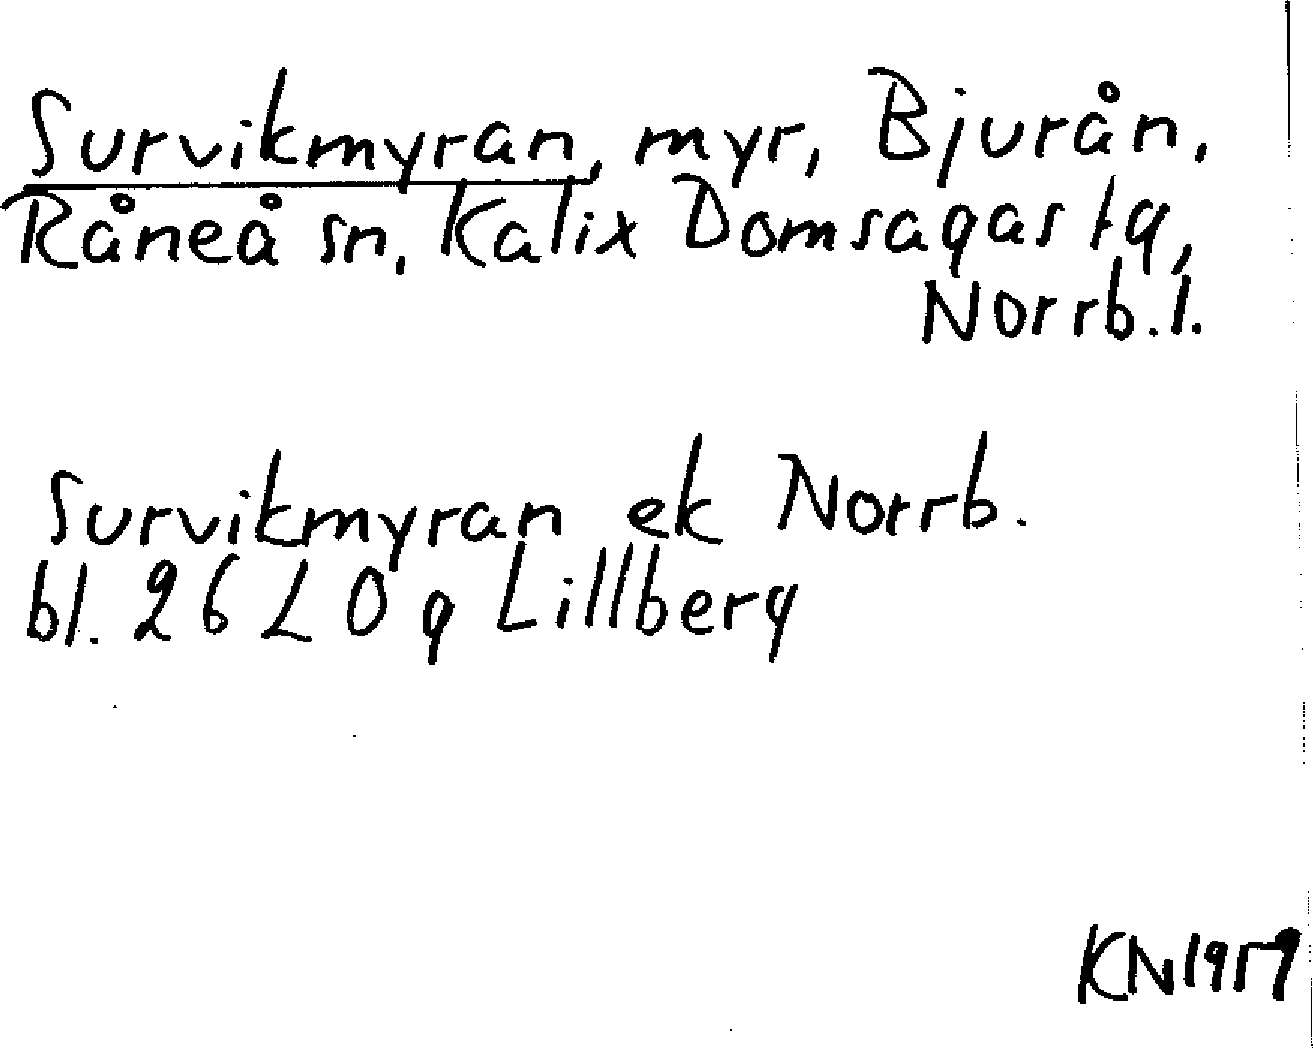 Survikmyran, myr, Bjurån,
Råneå sn, Kalix Domsagas tg,
Norrb. l.
Survikmyran ek Norrb.
bl. 26 L 0 g Lillberg
KN 1959